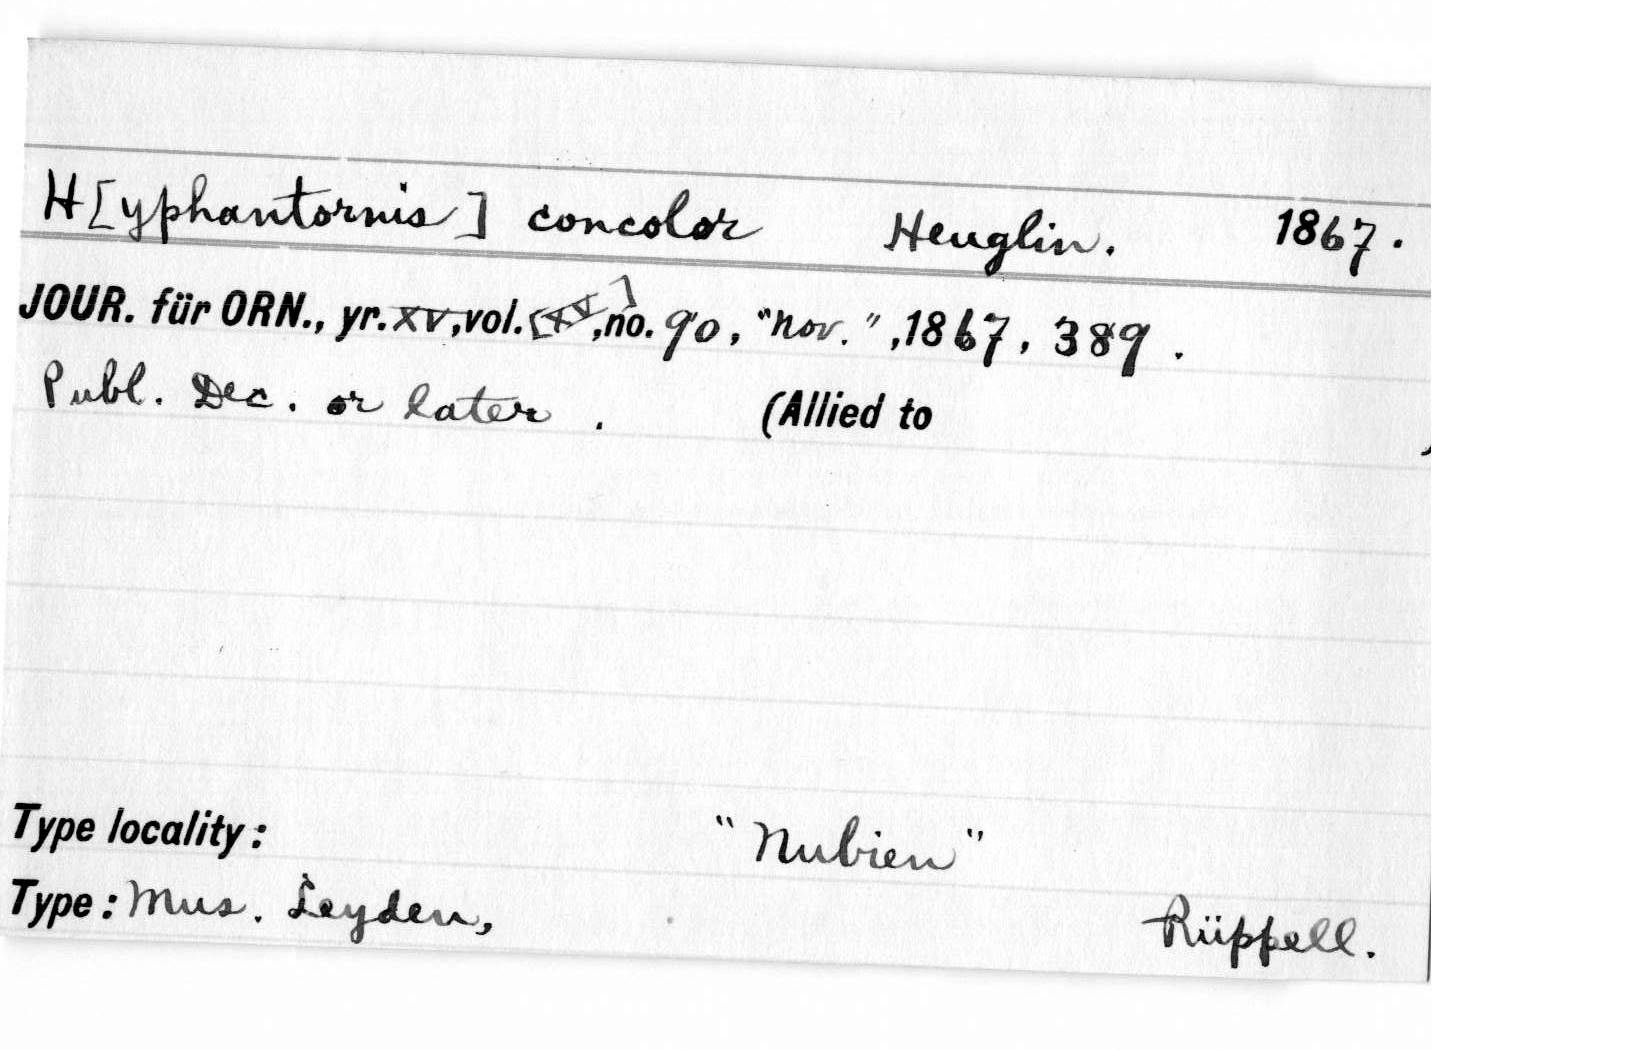 H[yphantornis] concolor Heuglin. 1867.
JOUR. für ORN., yr. XV, vol. [XV], no. 90, "Nov.", 1867, 389.
Publ. Dec. or later. (Allied to )
Type locality: "Nubien"
Type: Mus. Leyden, Rüppell.